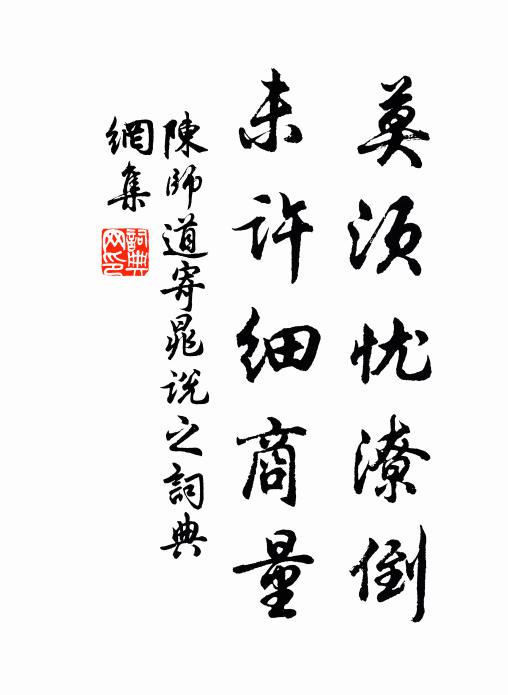 莫须忧潦倒
未许细商量
陳師道寄晁說之詞典
網集
詞典
网印